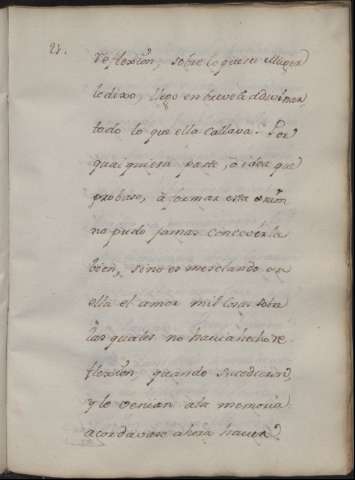 21.
reflexion, sobre lo que su Muger
le dixo, llegó en breve à adivinar
todo lo que ella callava. Por
qualquiera parte, ò idea que
probase, à formar esta union
no pudo jamas concevirla
bien, sino es mesclando en
ella el amor mil cosas sobre
las quales no havia hecho re-
flexion, quando sucedieron,
y le venian a la memoria
acordavase ahora havia